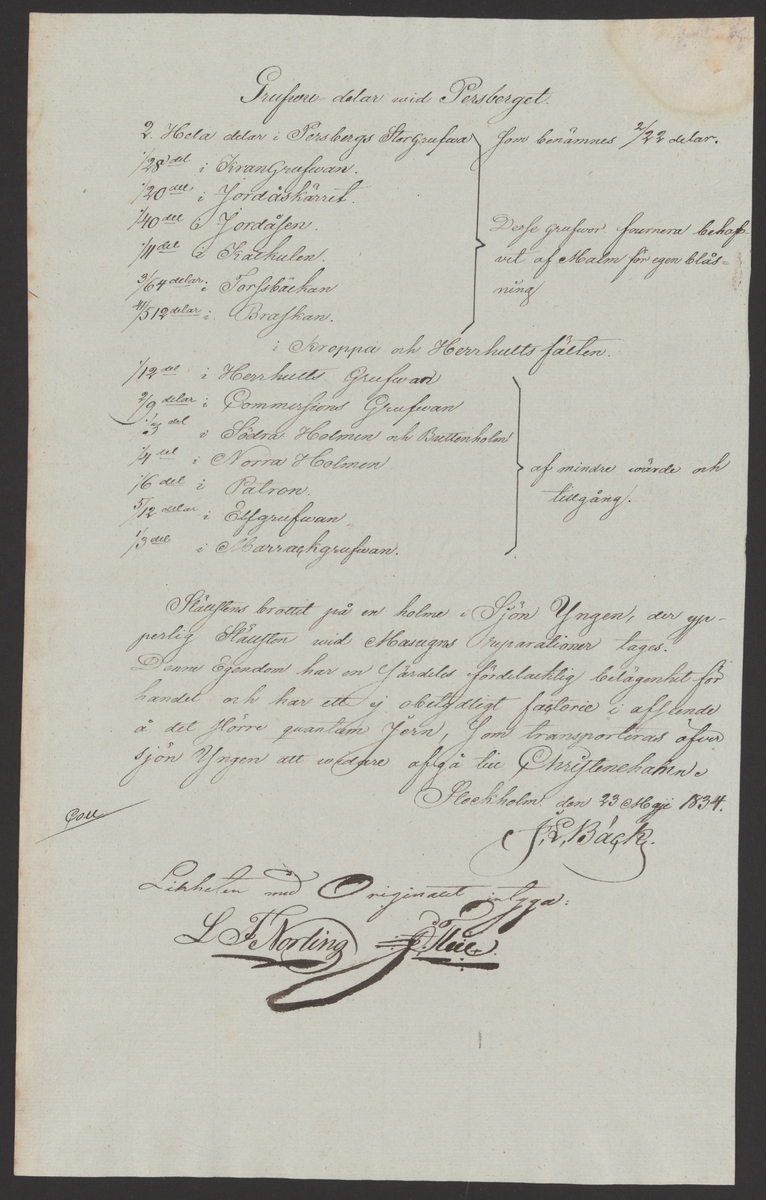 Grufwe-delar wid Persberget.
2. Hela delar i Persbergs Storgrufwa som benämnes 2/22 delar.
1/28 del i Krangrufwan.
1/20 del i Jordåskärret.
1/40 del i Jordåsen.
1/11 del i Kackulen.
3/64 delar i Torssbäckan
41/512 delar i Braskan.
Desse grufwor fournera behof-
vit af Malm för egen blås-
ning
i Kroppa och Herrhults fälten.
1/12 del i Herrhults Grufwan
2/9 delar i Commissions Grufwan
1/3 del i Södra Holmen och Buttenholm
1/4 del i Norra Holmen
1/6 del i Patron.
5/12 delar i Elfgrufwan
1/3 del i Marrackgrufwan.
af mindre wärde och
tillgång.
Ställstens brottit på en holme i Sjön Yngen, der yp-
perlig Ställsten wid Masugns reparationer tages.
Denne Egendom har en särdeles fördelacktig belägenhet för
handel och har ett ej obetydligt factorie i afseende
å det större quantum Jern, som transporteras öfver
sjön Yngen att widare afgå till Christinehamn.
Stockholm den 23 Maji 1834.
J. L. Bäck.
Coll
Likheten med Originalet intyga:
L F Norling